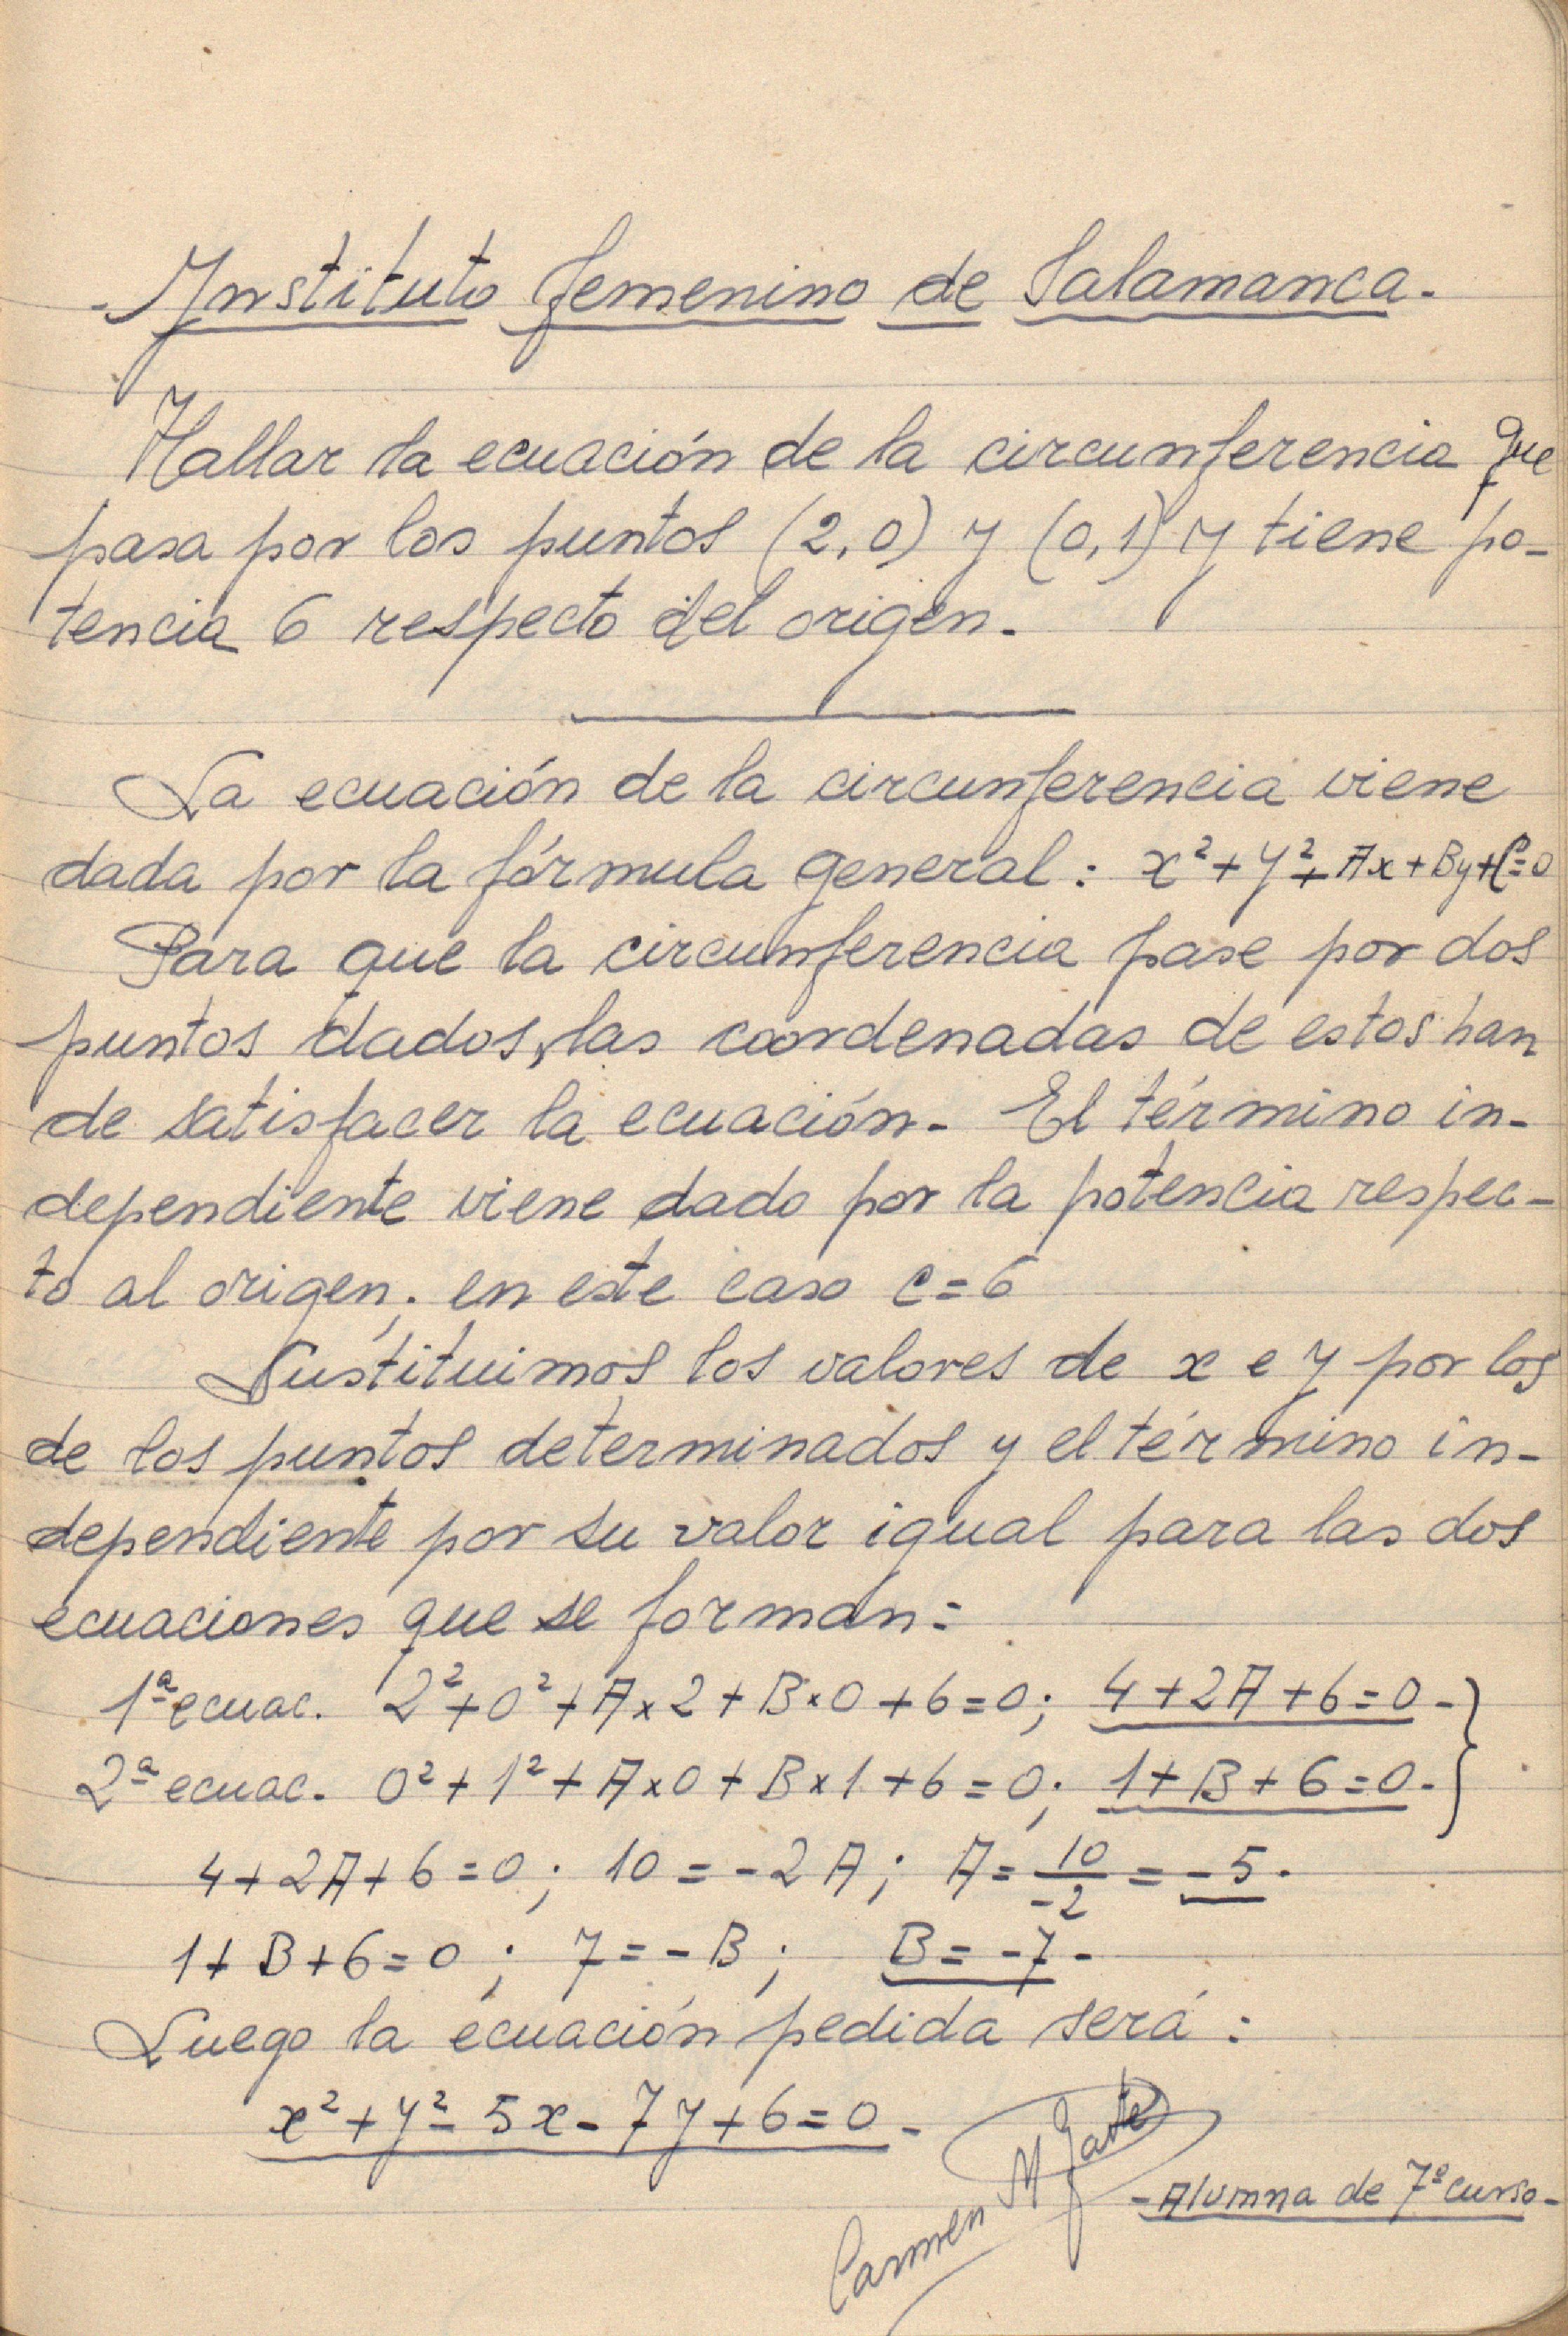 - Instituto femenino de Salamanca.
Hallar la ecuación de la circunferencia que
pasa por los puntos (2,0) y (0,1) y tiene po-
tencia 6 respecto del origen.
La ecuación de la circunferencia viene
dada por la fórmula general: x²+y²+Ax+By+C=0
Para que la circunferencia pase por dos
puntos dados, las coordenadas de estos han
de satisfacer la ecuación. El término in-
dependiente viene dado por la potencia respec-
to al origen; en este caso C=6
Sustituimos los valores de x e y por los
de los puntos determinados y el término in-
dependiente por su valor igual para las dos
ecuaciones que se forman:
1ª ecuac. 2²+0²+A×2+B×0+6=0; 4+2A+6=0-}
2ª ecuac. 0²+1²+A×0+B×1+6=0; 1+B+6=0-}
4+2A+6=0; 10=-2A; A=10/-2=-5.
1+B+6=0; 7=-B; B=-7-
Luego la ecuación pedida será:
x²+y²-5x-7y+6=0-
Carmen M
-Alumna de 7º curso-